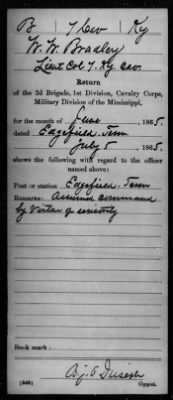 B 7 Cav Ky
W. W. Bradley
Lieut Col 7. Ky Cav.
Return
of the 2d Brigade, 1st Division, Cavalry Corps,
Military Division of the Mississippi,
for the month of June, 1865.
dated Edgefield. Tenn
July 5, 1865.
shows the following with regard to the officer
named above:
Post or station Edgefield. Tenn
Remarks: Assumed command
by Vertue of seniority
Book mark:
(448) Copyist.